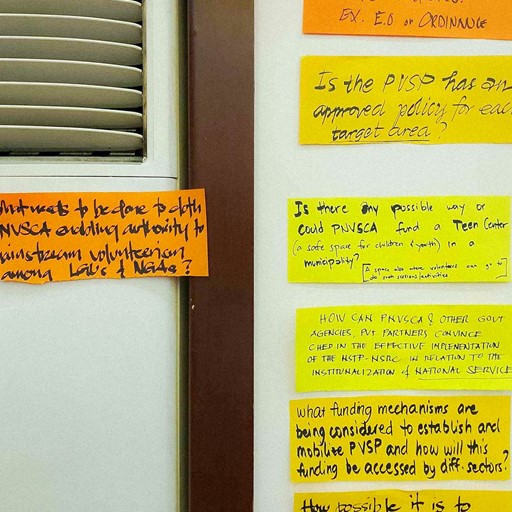 EX. E.O or ORDINANCE
Is the PVSP has an
approved policy for each
target area?
what needs to be done to cloth
PNVSCA enabling authority to
mainstream volunteerism
among LGU's & NGAs?
Is there any possible way or
could PNVSCA fund a Teen Center
(a safe space for children & youth) in a
municipality?
[A space also where volunteers can go to
do such sessions/activities]
HOW CAN PNVSCA & OTHER GOVT
AGENCIES, PVT PARTNERS CONVINCE
CHED IN THE EFFECTIVE IMPLEMENTATION
OF THE NSTP-NSRC IN RELATION TO THE
INSTITUNALIZATION of NATIONAL SERVICE
what funding mechanisms are
being considered to establish and
mobilize PVSP and how will this
funding be accessed by diff. sectors?
How possible it is to